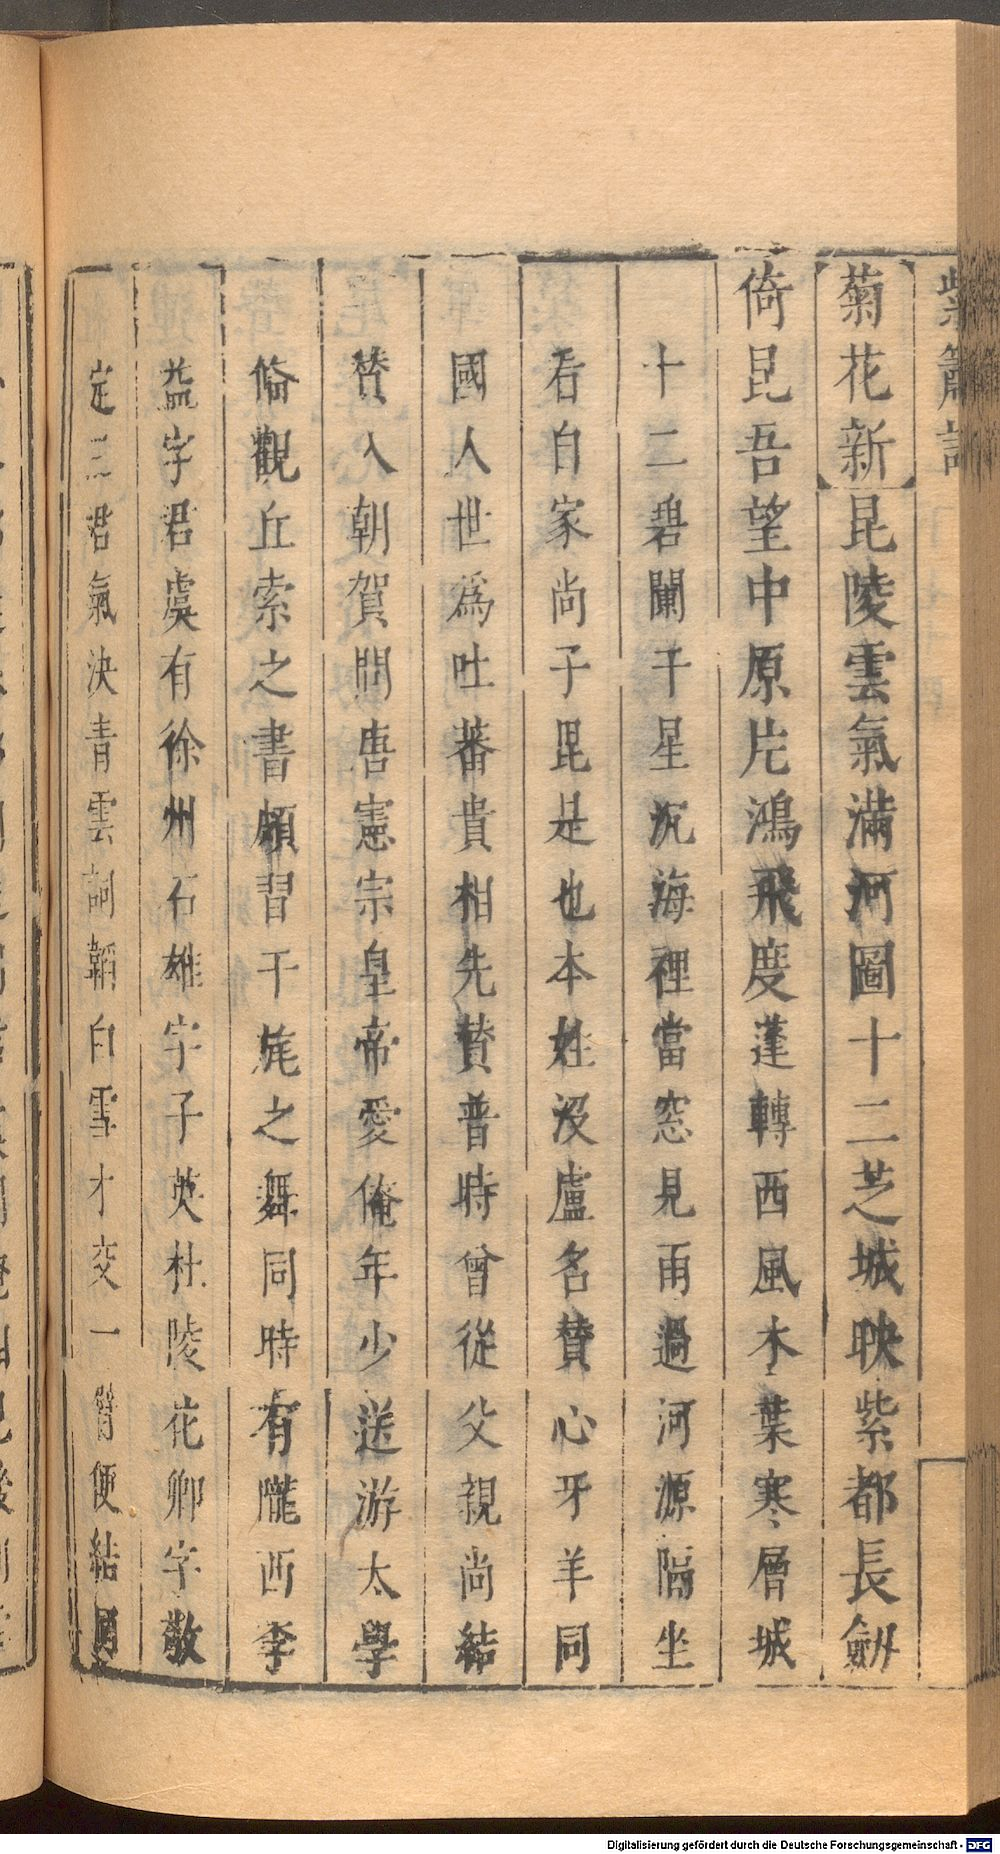 紫簫記
菊花新昆陵雲氣滿河圖十二芝城映紫都長劔
倚昆吾望中原片鴻飛度蓬轉西風木葉寒層城
十二碧闌干星沉海裡當窓見雨過河源隔坐
看自家尚子毘是也本姓沒盧名贊心牙羊同
國人世為吐蕃貴相先贊普時曾從父親尚結
贊入朝賀問唐憲宗皇帝愛俺年少送游太學
偹觀丘索之書頗習干旄之舞同時有隴西李
益字君虞有徐州石雄字子英杜陵花卿字敬
定三君氣決青雲詞韜白雪才交一臂便結
Digitalisierung gefördert durch die Deutsche Forschungsgemeinschaft - DFG